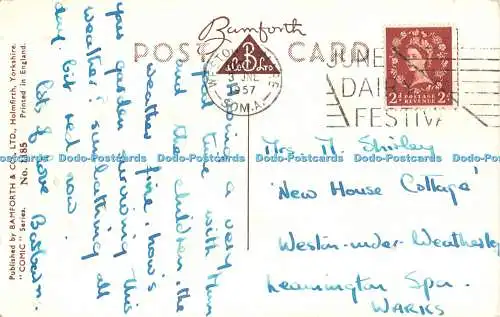 Bamforth
POST CARD
B
& Co Ltd
3 JNE
1957
SOM.A
JUNE
DAI
FESTIVA
2D POSTAGE REVENUE 2D
having a very
good time with Mum
and the children, the
weather fine, how's
your garden surviving this
weather? sunbathing all
day, bit red now.
lots of love Barbara.
Mrs. N. Shirley
'New House Cottage'
Weston-under-Weatherley
Leamington Spa.
WARKS
Published by BAMFORTH & CO., LTD., Holmfirth, Yorkshire.
"COMIC" Series. No. 2185 Printed in England.
Dodo-Postcards Dodo-Postcards Dodo-Postcards Dodo-Postcards Dodo-Postcards Dodo-Postcards